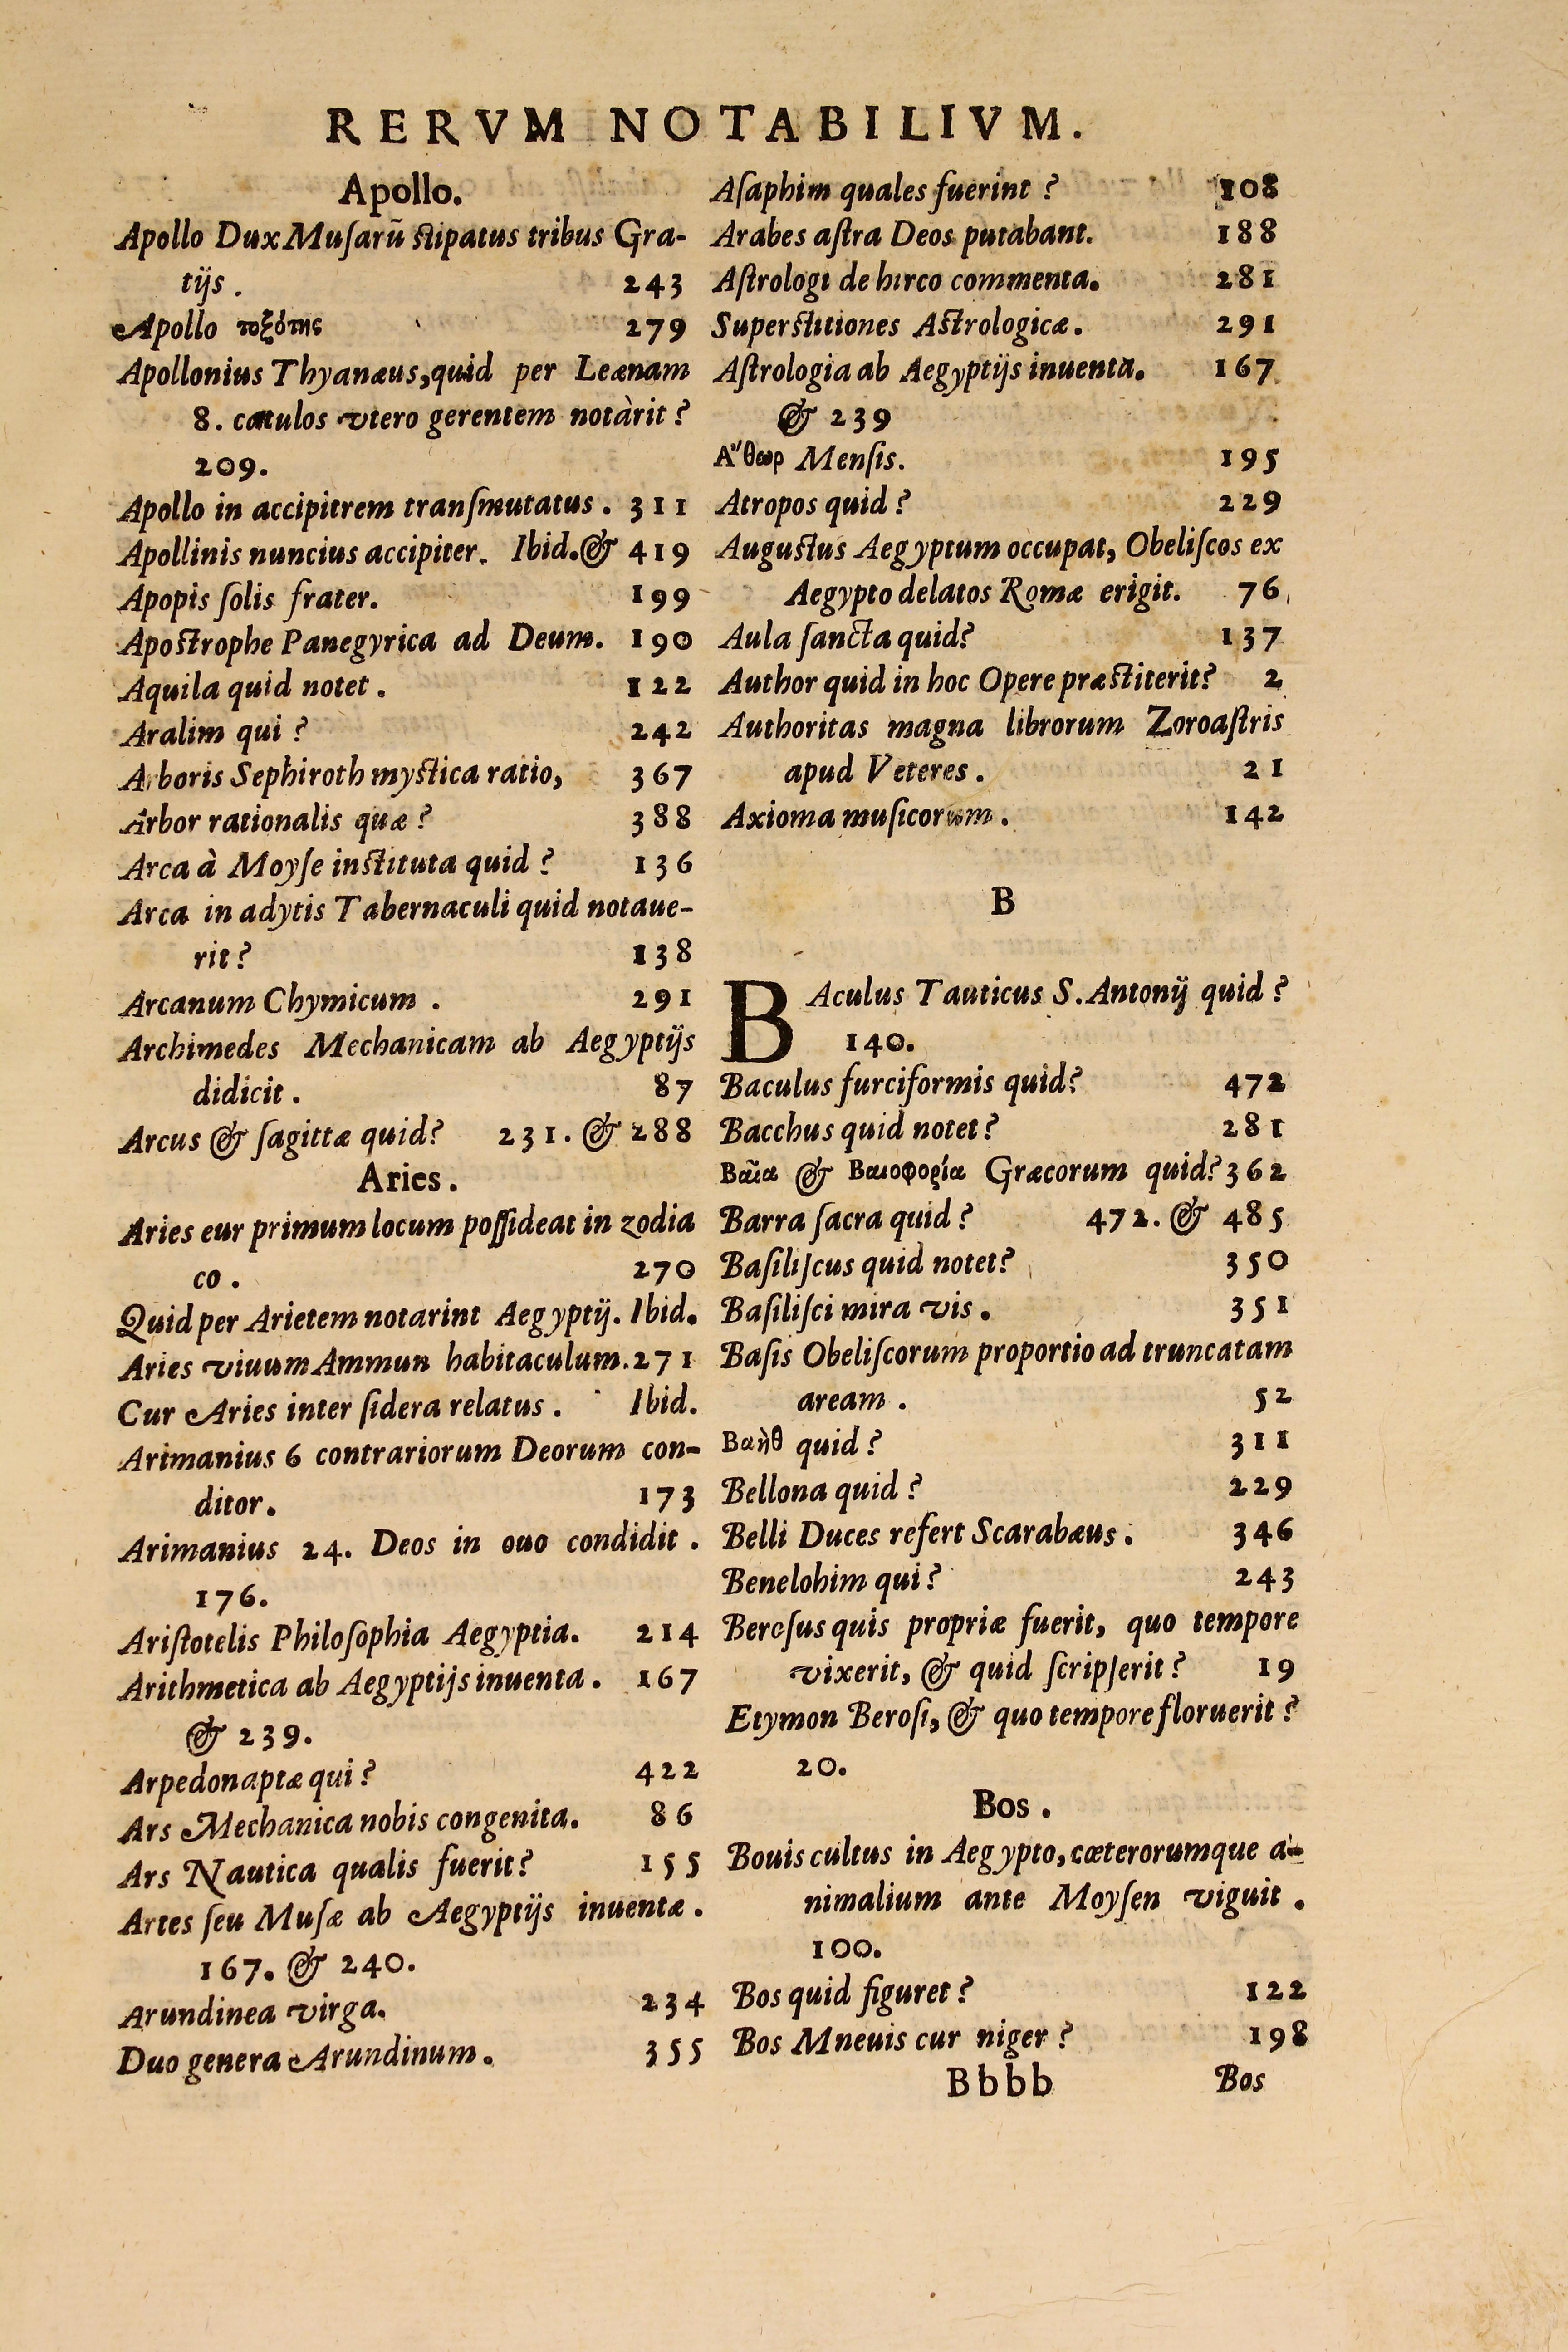 RERVM NOTABILIVM.
Apollo.
Apollo Dux Muſarũ ſtipatus tribus Gra-
tijs. 243
Apollo τοξότης 279
Apollonius Thyanæus, quid per Leænam
8. catulos vtero gerentem notàrit?
209.
Apollo in accipitrem tranſmutatus. 311
Apollinis nuncius accipiter. Ibid. & 419
Apopis ſolis frater. 199
Apoſtrophe Panegyrica ad Deum. 190
Aquila quid notet. 122
Aralim qui? 242
Arboris Sephiroth myſtica ratio, 367
Arbor rationalis quæ? 388
Arca à Moyſe inſtituta quid? 136
Arca in adytis Tabernaculi quid notaue-
rit? 138
Arcanum Chymicum. 291
Archimedes Mechanicam ab Aegyptijs
didicit. 87
Arcus & ſagittæ quid? 231. & 288
Aries.
Aries eur primum locum poſſideat in zodia
co. 270
Quid per Arietem notarint Aegyptij. Ibid.
Aries viuum Ammun habitaculum. 271
Cur Aries inter ſidera relatus. Ibid.
Arimanius 6 contrariorum Deorum con-
ditor. 173
Arimanius 24. Deos in ouo condidit.
176.
Ariſtotelis Philoſophia Aegyptia. 214
Arithmetica ab Aegyptijs inuenta. 167
& 239.
Arpedonaptæ qui? 422
Ars Mechanica nobis congenita. 86
Ars Nautica qualis fuerit? 155
Artes ſeu Muſæ ab Aegyptijs inuentæ.
167. & 240.
Arundinea virga. 234
Duo genera Arundinum. 355
Aſaphim quales fuerint? 108
Arabes aſtra Deos putabant. 188
Aſtrologi de hirco commenta. 281
Superſtitiones Aſtrologicæ. 291
Aſtrologia ab Aegyptijs inuenta. 167
& 239
Α῎θωρ Menſis. 195
Atropos quid? 229
Auguſtus Aegyptum occupat, Obeliſcos ex
Aegypto delatos Romæ erigit. 76
Aula ſancta quid? 137
Author quid in hoc Opere præſtiterit? 2
Authoritas magna librorum Zoroaſtris
apud Veteres. 21
Axioma muſicorum. 142
B
BAculus Tauticus S. Antonij quid?
140.
Baculus furciformis quid? 472
Bacchus quid notet? 281
Βαῖα & Βαιοφορία Græcorum quid? 362
Barra ſacra quid? 472. & 485
Baſiliſcus quid notet? 350
Baſiliſci mira vis. 351
Baſis Obeliſcorum proportio ad truncatam
aream. 52
Βαὴθ quid? 311
Bellona quid? 229
Belli Duces refert Scarabæus. 346
Benelohim qui? 243
Beroſus quis propriæ fuerit, quo tempore
vixerit, & quid ſcripſerit? 19
Etymon Beroſi, & quo tempore floruerit?
20.
Bos.
Bouis cultus in Aegypto, cœterorumque a-
nimalium ante Moyſen viguit.
100.
Bos quid figuret? 122
Bos Mneuis cur niger? 198
Bbbb Bos